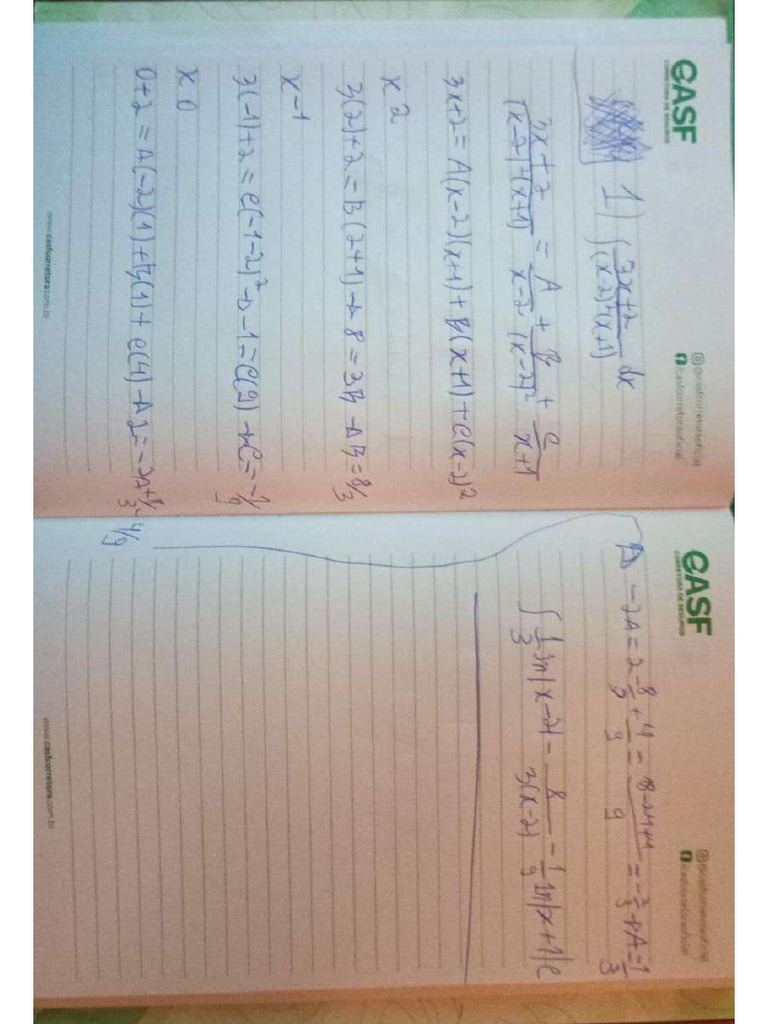 CASF
CORRETORA DE SEGUROS
@casfcorretoraoficial
/casfcorretoraoficial
1) ∫ (3x+2)/((x-2)²(x+1)) dx
(3x+2)/((x-2)²(x+1)) = A/(x-2) + B/(x-2)² + C/(x+1)
3x+2 = A(x-2)(x+1) + B(x+1) + C(x-2)²
x 2
3(2)+2 = B(2+1) → 8 = 3B → B = 8/3
x -1
3(-1)+2 = C(-1-2)² → -1 = C(9) → C = -1/9
x 0
0+2 = A(-2)(1) + B(1) + C(4) → 2 = -2A + 8/3 - 4/9
www.casfcorretora.com.br
CASF
CORRETORA DE SEGUROS
@casfcorretoraoficial
/casfcorretoraoficial
→ -2A = 2 - 8/3 + 4/9 = (18-24+4)/9 = -2/3 → A = 1/3
∫ 1/3 ln|x-2| - 8/(3(x-2)) - 1/9 ln|x+1| C
www.casfcorretora.com.br